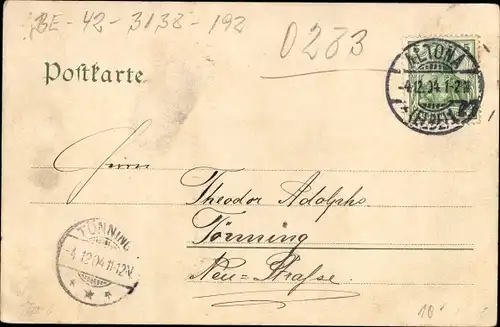 BE-42-3138-192
D283
Postkarte
ALTONA
-4.12.04.1-2N.
* (ELBE) 1
Herrn
Theodor Adolphs.
Tönning
Neu-Straße.
TÖNNING
-4.12.04.11-12V.
* * *
10